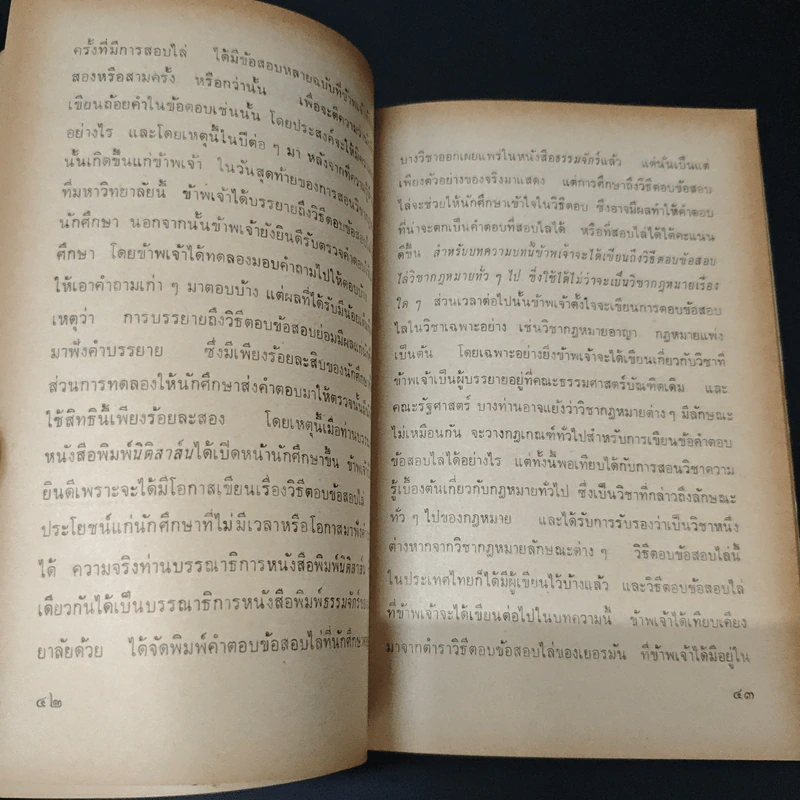 ครั้งที่มีการสอบไล่ ได้มีข้อสอบหลายฉบับที่ข้าพเจ้า
สองหรือสามครั้ง หรือกว่านั้น เพื่อจะตีความว่า
เขียนถ้อยคำในข้อตอบเช่นนั้น โดยประสงค์จะให้มี
อย่างไร และโดยเหตุนี้ในปีต่อ ๆ มา หลังจากที่
นั้นเกิดขึ้นแก่ข้าพเจ้า ในวันสุดท้ายของการสอน
ที่มหาวิทยาลัยนี้ ข้าพเจ้าได้บรรยายถึงวิธีตอบข้อสอบ
นักศึกษา นอกจากนั้นข้าพเจ้ายังยินดีรับตรวจคำตอบ
ศึกษา โดยข้าพเจ้าได้ทดลองมอบคำถามไปให้ตอบบ้าง
ให้เอาคำถามเก่า ๆ มาตอบบ้าง แต่ผลที่ได้รับมีน้อย
เหตุว่า การบรรยายถึงวิธีตอบข้อสอบย่อมมีผล
มาฟังคำบรรยาย ซึ่งมีเพียงร้อยละสิบของนักศึกษา
ส่วนการทดลองให้นักศึกษาส่งคำตอบมาให้ตรวจนั้น
ใช้สิทธินี้เพียงร้อยละสอง โดยเหตุนี้เมื่อท่าน
หนังสือพิมพ์นิติสาส์นได้เปิดหน้านักศึกษาขึ้น ข้าพเจ้า
ยินดีเพราะจะได้มีโอกาสเขียนเรื่องวิธีตอบข้อสอบไล่
ประโยชน์แก่นักศึกษาที่ไม่มีเวลาหรือโอกาสมาฟัง
ได้ ความจริงท่านบรรณาธิการหนังสือพิมพ์นิติสาส์น
เดียวกันได้เป็นบรรณาธิการหนังสือพิมพ์ธรรมจักร์
ยาลัยด้วย ได้จัดพิมพ์คำตอบข้อสอบไล่ที่นักศึกษา
๔๒
บางวิชาออกเผยแพร่ในหนังสือธรรมจักร์แล้ว แต่นั่นเป็นแต่
เพียงตัวอย่างของจริงมาแสดง แต่การศึกษาถึงวิธีตอบข้อสอบ
ไล่จะช่วยให้นักศึกษาเข้าใจในวิธีตอบ ซึ่งอาจมีผลทำให้คำตอบ
ที่น่าจะตกเป็นคำตอบที่สอบไล่ได้ หรือที่สอบไล่ได้ได้คะแนน
ดีขึ้น สำหรับบทความบทนี้ข้าพเจ้าจะได้เขียนถึงวิธีตอบข้อสอบ
ไล่วิชากฎหมายทั่ว ๆ ไป ซึ่งใช้ได้ไม่ว่าจะเป็นวิชากฎหมายเรื่อง
ใด ๆ ส่วนเวลาต่อไปนั้นข้าพเจ้าตั้งใจจะเขียนการตอบข้อสอบ
ไล่ในวิชาเฉพาะอย่าง เช่นวิชากฎหมายอาญา กฎหมายแพ่ง
เป็นต้น โดยเฉพาะอย่างยิ่งข้าพเจ้าจะได้เขียนเกี่ยวกับวิชาที่
ข้าพเจ้าเป็นผู้บรรยายอยู่ที่คณะธรรมศาสตร์บัณฑิตเดิม และ
คณะรัฐศาสตร์ บางท่านอาจแย้งว่าวิชากฎหมายต่าง ๆ มีลักษณะ
ไม่เหมือนกัน จะวางกฎเกณฑ์ทั่วไปสำหรับการเขียนข้อคำตอบ
ข้อสอบไล่ได้อย่างไร แต่ทั้งนี้พอเทียบได้กับการสอนวิชาความ
รู้เบื้องต้นเกี่ยวกับกฎหมายทั่วไป ซึ่งเป็นวิชาที่กล่าวถึงลักษณะ
ทั่ว ๆ ไปของกฎหมาย และได้รับการรับรองว่าเป็นวิชาหนึ่ง
ต่างหากจากวิชากฎหมายลักษณะต่าง ๆ วิธีตอบข้อสอบไล่นี้
ในประเทศไทยก็ได้มีผู้เขียนไว้บ้างแล้ว และวิธีตอบข้อสอบไล่
ที่ข้าพเจ้าจะได้เขียนต่อไปในบทความนี้ ข้าพเจ้าได้เทียบเคียง
มาจากตำราวิธีตอบข้อสอบไล่ของเยอรมัน ที่ข้าพเจ้าได้มีอยู่ใน
๔๓